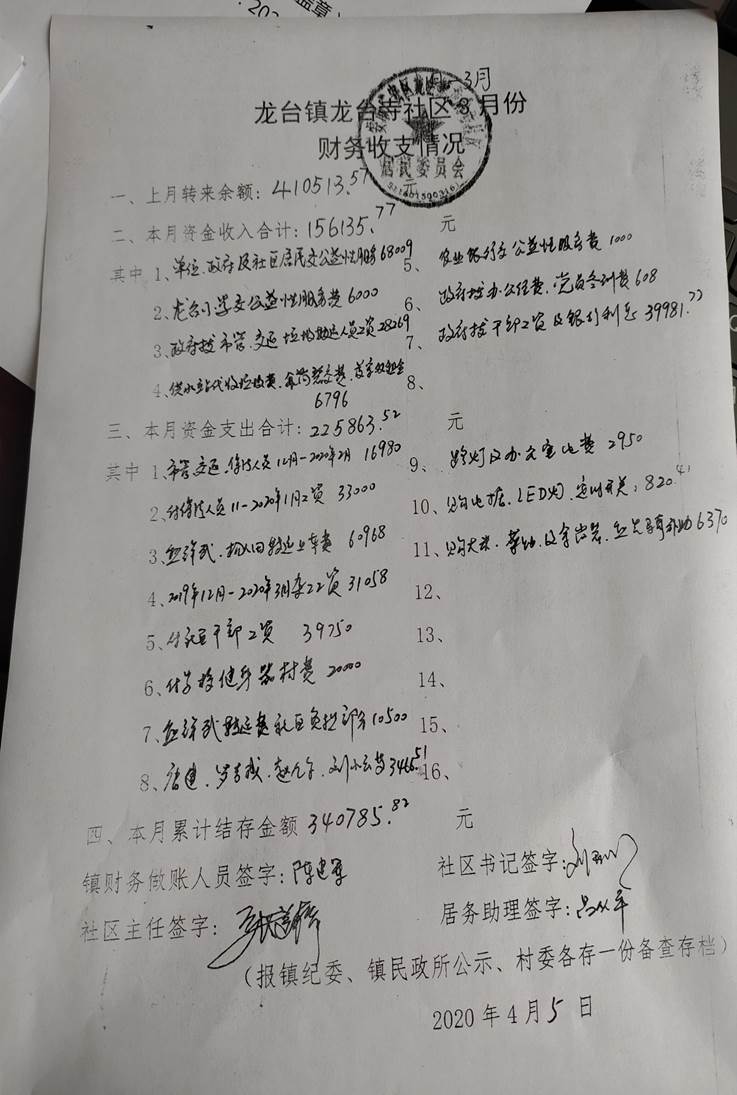 3月
龙台镇龙台寺社区3月份
财务收支情况
居民委员会
一、上月转来余额：410513.57 元
二、本月资金收入合计：156135.77 元
其中 1、单位、政府及社区居民交公益性服务68009
2、龙台小学交公益性服务费6000
3、政府拨市管、交通、垃圾 人员工资28269
4、供水站代收垃圾费
6796
5、农业银行交公益性服务费1000
6、政府拨办公经费、党员冬训费608
7、政府拨干部工资及银行利息39981.77
8、
三、本月资金支出合计：225863.52 元
其中 1、市管交通、保洁人员12月-2020年2月 16980
2、付保洁人员11-2020年1月工资 33000
3、 60968
4、2019年12月-2020年3月 工资31058
5、付社区干部工资 39750
6、付 健身器材费 20000
7、 社区负担部分10500
8、唐建、 3466.51
9、路灯及办公室电费 2950
10、购电 、LED灯、定时开关：820.41
11、购大米、 补助6370
12、
13、
14、
15、
16、
四、本月累计结存金额340785.82 元
镇财务做账人员签字：陈建军
社区书记签字：
社区主任签字：
居务助理签字：
（报镇纪委、镇民政所公示、村委各存一份备查存档）
2020年4月5日